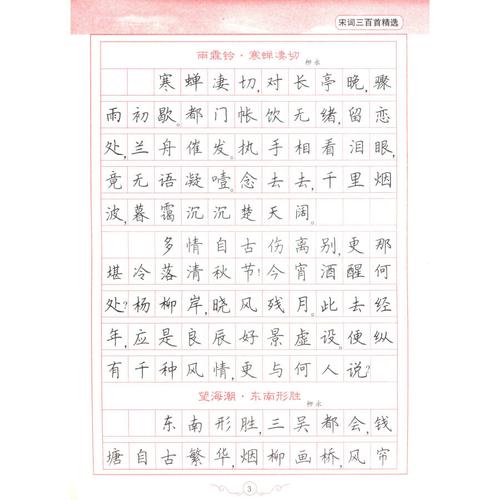 宋词三百首精选
雨霖铃·寒蝉凄切 柳永
寒蝉凄切,对长亭晚,骤
雨初歇。都门帐饮无绪,留恋
处,兰舟催发。执手相看泪眼,
竟无语凝噎。念去去,千里烟
波,暮霭沉沉楚天阔。
多情自古伤离别,更那
堪冷落清秋节!今宵酒醒何
处?杨柳岸,晓风残月。此去经
年,应是良辰好景虚设。便纵
有千种风情,更与何人说?
望海潮·东南形胜 柳永
东南形胜,三吴都会,钱
塘自古繁华,烟柳画桥,风帘
3